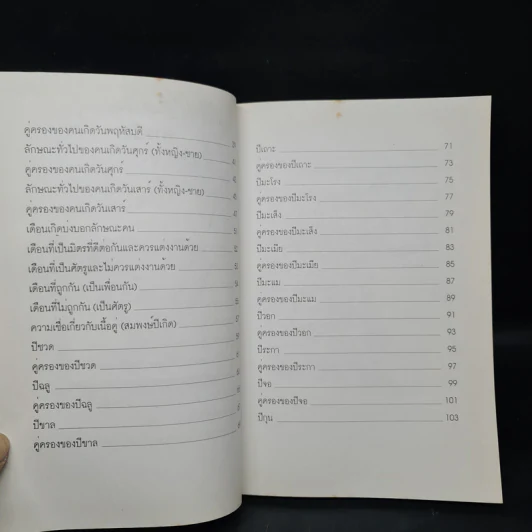 คู่ครองของคนเกิดวันพฤหัสบดี
ลักษณะทั่วไปของคนเกิดวันศุกร์ (ทั้งหญิง-ชาย)
คู่ครองของคนเกิดวันศุกร์
ลักษณะทั่วไปของคนเกิดวันเสาร์ (ทั้งหญิง-ชาย)
คู่ครองของคนเกิดวันเสาร์
เดือนเกิดบ่งบอกลักษณะคน
เดือนที่เป็นมิตรที่ดีต่อกันและควรแต่งงานด้วย
เดือนที่เป็นศัตรูและไม่ควรแต่งงานด้วย
เดือนที่ถูกกัน (เป็นเพื่อนกัน)
เดือนที่ไม่ถูกกัน (เป็นศัตรู)
ความเชื่อเกี่ยวกับเนื้อคู่ (สมพงษ์ปีเกิด)
ปีชวด
คู่ครองของปีชวด
ปีฉลู
คู่ครองของปีฉลู
ปีขาล
คู่ครองของปีขาล
ปีเถาะ 71
คู่ครองของปีเถาะ 73
ปีมะโรง 75
คู่ครองของปีมะโรง 77
ปีมะเส็ง 79
คู่ครองของปีมะเส็ง 81
ปีมะเมีย 83
คู่ครองของปีมะเมีย 85
ปีมะแม 87
คู่ครองของปีมะแม 89
ปีวอก 91
คู่ครองของปีวอก 93
ปีระกา 95
คู่ครองของปีระกา 97
ปีจอ 99
คู่ครองของปีจอ 101
ปีกุน 103